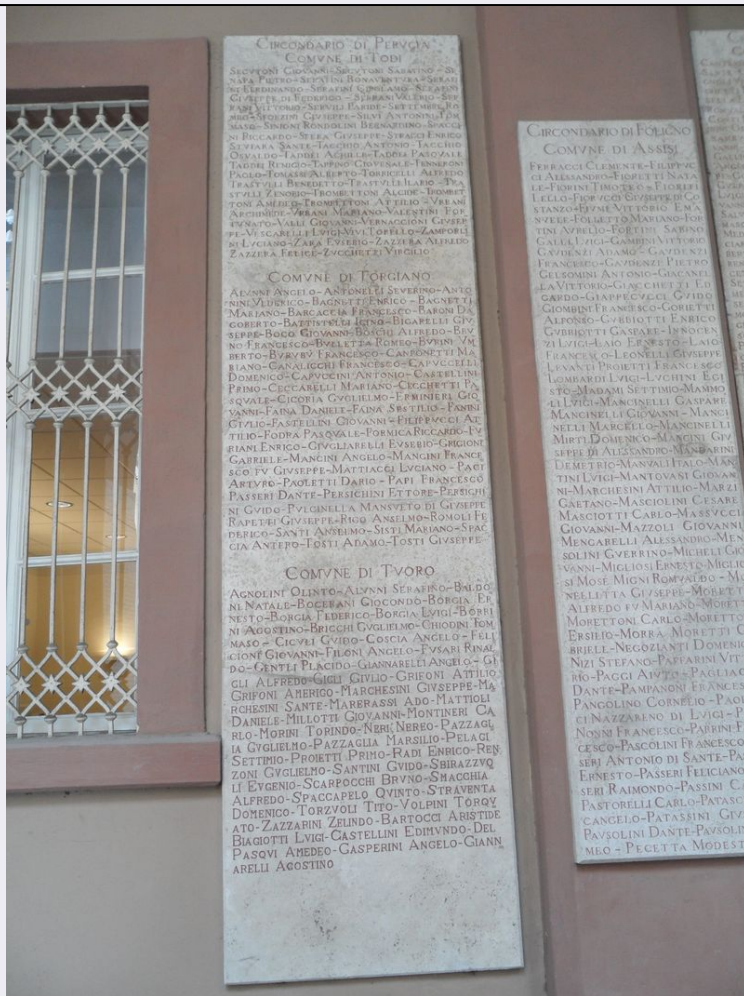 CIRCONDARIO DI PERVGIA
COMVNE DI TODI
SECVTONI GIOVANNI-SECVTONI SABATINO-
PIETRO-SERAFINI BONAVENTVRA-SERAFI
NI FERDINANDO-SERAFINI GIROLAMO-SERAFINI
GIVSEPPE DI FEDERICO-SERRANI VALERIO-SER
RANI VITTORIO-SERVILI PARIDE-SETTEMBRE RO
SFORZINI GIVSEPPE-SILVI ANTONINI TOM
MASO-SINIONI RONDOLINI BERNARDINO-SPACCI
NI RICCARDO-SPERA GIVSEPPE-STRACCI ENRICO
SANTE-TACCHIO ANTONIO-TACCHIO
OSVALDO-TADDEI ACHILLE-TADDEI PASQVALE
TADDEI REMIGIO-TAPPINO GIOVENALE-TENNERONI
PAOLO-TOMASSI ALBERTO-TORRICELLI ALFREDO
TRASTVLLI BENEDETTO-TRASTVLLI ILARIO-TRA
STVLLI ZENOBIO-TROMBETTONI ALCIDE-TROMBET
TONI AMERICO-TROMBETTONI ATTILIO-VRBANI
ARCHIMEDE-VRBANI MARIANO-VALENTINI FOR
TVNATO-VALLI GIOVANNI-VERNACCIONI GIVSEP
PE-VESCARELLI LVIGI-VIVI TORELLO-ZAMPORLI
NI LVCIANO-ZARA EVSEBIO-ZAZZERA ALFREDO
ZAZZERA FELICE-ZVCCHETTI VIRGILIO
COMVNE DI TORGIANO
ALVNNI ANGELO-ANTONELLI SEVERINO-ANTO
NINI VEDERICO-BAGNETTI ENRICO-BAGNETTI
MARIANO-BARCACCIA FRANCESCO-BARONI DA
GOBERTO-BATTISTELLI IGINO-BIGARELLI GIV
SEPPE-BOCO GIOVANNI-BOSCHI ALFREDO-BRV
NO FRANCESCO-BVLLETTA ROMEO-BVRINI VM
BERTO-BVRVBV FRANCESCO-CAMPONETTI MA
RIANO-CANALICCHI FRANCESCO-CAPVCCELLI
DOMENICO-CAPVCCINI ANTONIO-CASTELLINI
PRIMO-CECCARELLI MARIANO-CECCHETTI PA
SQVALE-CICORIA GVGLIELMO-ERMINIERI GIO
VANNI-FAINA DANIELE-FAINA SOSTILIO-FANINI
GIVLIO-FASTELLINI GIOVANNI-FILIPPVCCI AT
TILIO-FODRA PASQVALE-FORMICA RICCARDO-FV
RIANI ENRICO-GIVGLIARELLI EVSEBIO-GRIGIONI
GABRIELE-MANCINI ANGELO-MANCINI FRANCE
SCO FV GIVSEPPE-MATTIACCI LVCIANO-PACI
ARTVRO-PAOLETTI DARIO-PAPI FRANCESCO
PASSERI DANTE-PERSICHINI ETTORE-PERSICHI
NI GVIDO-PVLCINELLA MANSVETO DI GIVSEPPE
RAPETTI GIVSEPPE-RIGO ANSELMO-ROMOLI FE
DERICO-SANTI ANSELMO-SISTI MARIANO-SPAC
CIA ANTERO-TOSTI ADAMO-TOSTI GIVSEPPE
COMVNE DI TVORO
AGNOLINI OLINTO-ALVNNI SERAFINO-BALDO
NI NATALE-BOCERANI GIOCONDO-BORGIA ER
NESTO-BORGIA FEDERICO-BORGIA LVIGI-BORRI
NI AGOSTINO-BRICCHI GVGLIELMO-CHIODINI TOM
MASO-CICVLI GVIDO-COSCIA ANGELO-FELI
CIONI GIOVANNI-FILONI ANGELO-FVSARI RINAL
DO-GENTLI PLACIDO-GIANNARELLI ANGELO-GI
GLI ALFREDO-GIGLI GIVLIO-GRIFONI ATTILIO
GRIFONI AMERICO-MARCHESINI GIVSEPPE-MA
RCHESINI SANTE-MARERASSI ADO-MATTIOLI
DANIELE-MILLOTTI GIOVANNI-MONTINERI CA
RLO-MORINI TORINDO-NERI NEREO-PAZZAGL
IA GVGLIELMO-PAZZAGLIA MARSILIO-PELAGI
SETTIMIO-PROIETTI PRIMO-RADI ENRICO-REN
ZONI GVGLIELMO-SANTINI GVIDO-SBIRAZZVO
LI EVGENIO-SCARPOCCHI BRVNO-SMACCHIA
ALFREDO-SPACCAPELO QVINTO-STRAVENTA
DOMENICO-TORZVOLI TITO-VOLPINI TORQV
ATO-ZAZZARINI ZELINDO-BARTOCCI ARISTIDE
BIAGIOTTI LVIGI-CASTELLINI EDIMVNDO-DEL
PASQVI AMEDEO-GASPERINI ANGELO-GIANN
ARELLI AGOSTINO
CIRCONDARIO DI FOLIGNO
COMVNE DI ASSISI
FERRACCI CLEMENTE-FILIPPVC
CI ALESSANDRO-FIORETTI NATA
LE-FIORINI TIMOTEO-FIORERI
LELLO-FIORVCCI GIVSEPPE DI CO
STANZO-FIVME VITTORIO EMA
NVELE-FOLLETTO MARIANO-FOR
TINI AVRELIO-FORTINI SABINO
GALLI LVIGI-GAMBINI VITTORIO
GAVDENZI ADAMO-GAVDENZI
FRANCESCO-GAVDENZI PIETRO
GELSOMINI ANTONIO-GIACANEL
LA VITTORIO-GIACCHETTI ED
GARDO-GIAPPECVCCI GVIDO
GIOMBINI FRANCESCO-GORIETTI
ALFONSO-GVBBIOTTI ENRICO
GVBBIOTTI GASPARE-INNOCEN
ZI LVIGI-LAIO ERNESTO-LAIO
FRANCESCO-LEONELLI GIVSEPPE
LEVANTI PROIETTI FRANCESCO
LOMBARDI LVIGI-LVCHINI EGI
STO-MADAMI SETTIMIO-MAMMO
LI LVIGI-MANCINELLI GASPARE
MANCINELLI GIOVANNI-MANCI
NELLI MARCELLO-MANCINELLI
MIRTI DOMENICO-MANCINI GIV
SEPPE DI ALESSANDRO-MANDARINI
DEMETRIO-MANVALI ITALO-MAN
TINI LVIGI-MANTOVANI GIOVAN
NI-MARCHESINI ATTILIO-MARZI
GAETANO-MASCIOLINI CESARE
MASCIOTTI CARLO-MASSVCCI
GIOVANNI-MAZZOLI GIOVANNI
MENGARELLI ALESSANDRO-MEN
SOLINI GVERRINO-MICHELI GIO
VANNI-MIGLIOSI ERNESTO-MIGLIO
SI MOSÈ MIGNI ROMVALDO-M
NELLETTA GIVSEPPE-MORETT
ALFREDO FV MARIANO-MORET
MORETTONI CARLO-MORETTO
ERSILIO-MORRA MORETTI G
BRIELE-NEGOZIANTI DOMENIC
NIZI STEFANO-PAFFARINI VIT
RIO-PAGGI ANITO-PAGLIAC
DANTE-PAMPANONI FRANCES
PANGOLINO CORNELIO-PAO
CI NAZZARENO DI LVIGI-P
NONNI FRANCESCO-PARRINI F
CESCO-PASCOLINI FRANCESCO
SERI ANTONIO DI SANTE-PA
ERNESTO-PASSERI FELICIANO
SERI RAIMONDO-PASSINI C
PASTORELLI CARLO-PATASC
CANGELO-PATASSINI GIV
PAVSOLINI DANTE-PAVSOLI
MEO-PECETTA MODEST